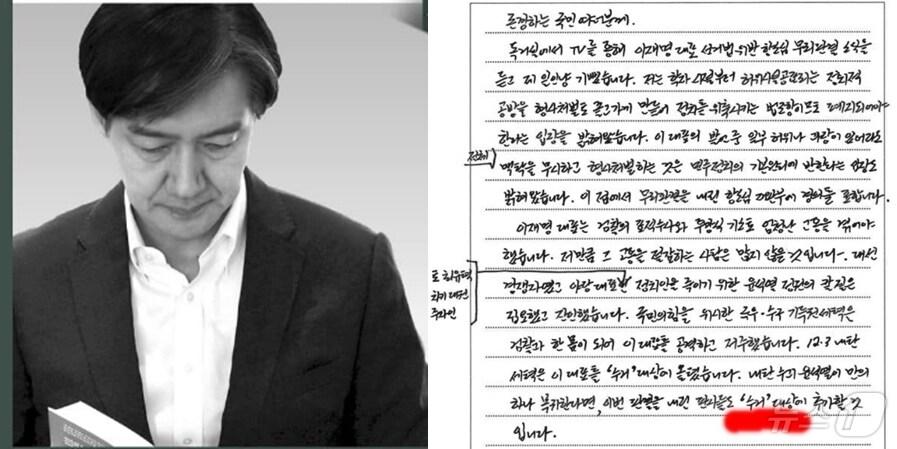 존경하는 국민 여러분께.
독거실에서 TV를 통해 이재명 대표 선거법 위반 항소심 무리판결 소식을
듣고 제 일인양 기뻤습니다. 저는 학자 시절부터 허위사실공표죄는 정치적
공방을 형사처벌로 끌고가게 만들어 정치를 위축시키는 법조항이므로 폐지되어야
한다는 입장을 밝혀왔습니다. 이 대표의 발언 중 일부 허위나 과장이 있더라도
전체
맥락을 무시하고 형사처벌하는 것은 민주정치의 기본원리에 반한다는 입장도
밝혀왔습니다. 이 점에서 무리판결을 내린 항소심 재판부에 경의를 표합니다.
이재명 대표는 검찰의 표적수사와 투망식 기소로 엄청난 고통을 겪어야
했습니다. 저만큼 그 고통을 절감하는 사람은 많지 않을 것입니다. 대선
또 최유력
차기 대권
주자인
경쟁자였고 야당 대표인 정치인을 죽이기 위한 윤석열 정권의 칼질은
집요했고 잔인했습니다. 국민의힘을 위시한 극우·수구 기득권세력은
검찰과 한 몸이 되어 이 대표를 공격하고 저주했습니다. 12.3 내란
세력은 이 대표를 '수거' 대상에 올렸습니다. 내란 수괴 윤석열이 만의
하나 복귀한다면, 이번 판결을 내린 판사들도 '수거' 대상에 추가할 것
입니다.
뉴스1